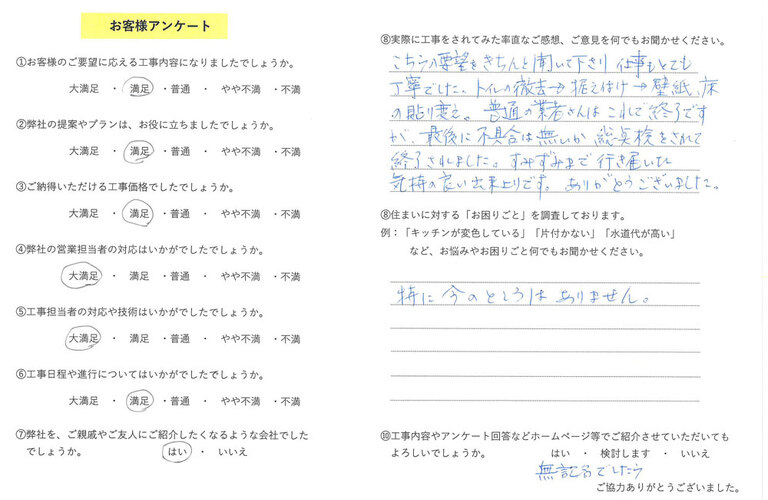 お客様アンケート
①お客様のご要望に応える工事内容になりましたでしょうか。
大満足 ・ 満足 ・普通 ・ やや不満 ・不満
②弊社の提案やプランは、お役に立ちましたでしょうか。
大満足 ・ 満足 ・普通 ・ やや不満 ・不満
③ご納得いただける工事価格でしたでしょうか。
大満足 ・ 満足 ・普通 ・ やや不満 ・不満
④弊社の営業担当者の対応はいかがでしたでしょうか。
大満足 ・ 満足 ・普通 ・ やや不満 ・不満
⑤工事担当者の対応や技術はいかがでしたでしょうか。
大満足 ・ 満足 ・普通 ・ やや不満 ・不満
⑥工事日程や進行についてはいかがでしたでしょうか。
大満足 ・ 満足 ・普通 ・ やや不満 ・不満
⑦弊社を、ご親戚やご友人にご紹介したくなるような会社でした
でしょうか。 はい ・ いいえ
⑧実際に工事をされてみた率直なご感想、ご意見を何でもお聞かせください。
こちらの要望をきちんと聞いて下さり 仕事もとても
丁寧でした。トイレの撤去→据えつけ→壁紙、床
の貼り変え。普通の業者さんはこれで終了です
が、最後に不具合は無いか 総点検をされて
終了されました。すみずみまで行き届いた
気持の良い出来上りです。ありがとうございました。
⑧住まいに対する「お困りごと」を調査しております。
例：「キッチンが変色している」「片付かない」「水道代が高い」
など、お悩みやお困りごと何でもお聞かせください。
特に今のところはありません。
⑩工事内容やアンケート回答などホームページ等でご紹介させていただいても
よろしいでしょうか。 はい ・ 検討します ・ いいえ
無記名でしたら
ご協力ありがとうございました。